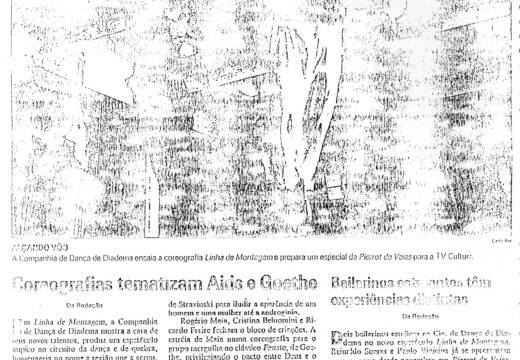 ALÇANDO VÔO
A Companhia de Dança de Diadema ensaia a coreografia Linha de Montagem e prepara um especial da Pierrot da Vaias para a TV Cultura.
Coreografias tematizam Aids e Goethe
Da Redação
Em Linha de Montagem, a Companhia
de Dança de Diadema mostra a cara de
seus novos talentos, produz um espetáculo
atípico no circuito da dança e de quebra,
homenageia no nome a região que a gerou.
de Stravinski para iludir a aparência de um
homem e uma mulher até a androginia.
Rogério Maia, Cristina Belluomini e Ri-
cardo Freire fecham o bloco de criações. A
estréia de Maia numa coreografia para o
grupo mergulha no clássico Fausto, de Goe-
the, privilegiando o pacto entre Deus e o
Bailarinos estreantes têm
experiências distintas
Da Redação
Seis bailarinos estréiam na Cia. de Dança de Dia-
dema no novo espetáculo Linha de Montagem.
Reinaldo Soares e Paulo Vinícius já se apresentam